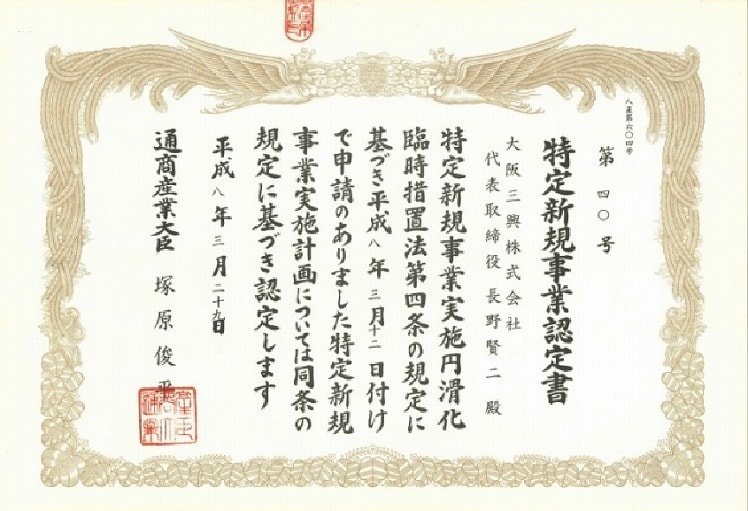 八産第六〇四号
第四〇号
特定新規事業認定書
大阪三興株式会社
代表取締役 長野賢二 殿
特定新規事業実施円滑化
臨時措置法第四条の規定に
基づき平成八年三月十二日付け
で申請のありました特定新規
事業実施計画については同条の
規定に基づき認定します
平成八年三月二十九日
通商産業大臣 塚原俊平